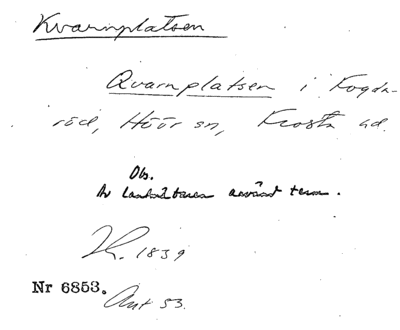 Kvarnplatsen
Qvarnplatsen i Fogda-
röd, Höör sn, Frosta hd.
Obs.
Av lantmätaren använt term.
1839
Nr 6853.
Ant 53.